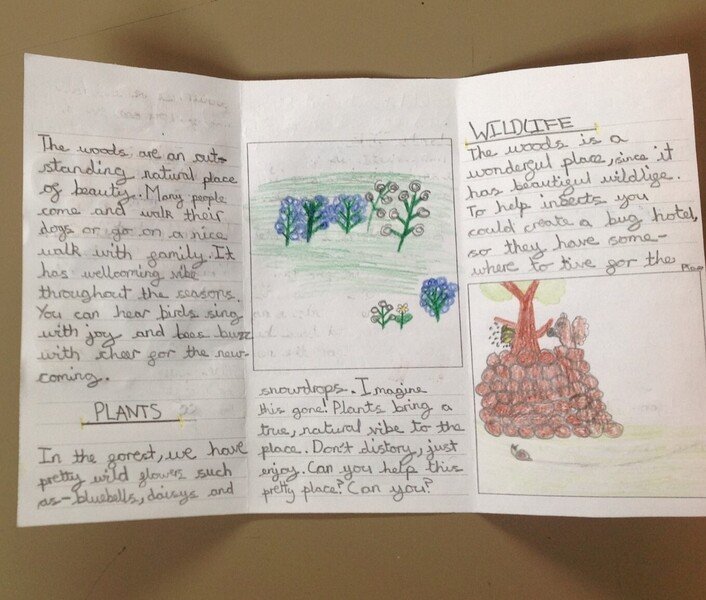 The woods are an out-
standing natural place
of beauty. Many people
come and walk their
dogs or go on a nice
walk with family. It
has wellcoming vibe
throughout the seasons.
You can hear birds sing
with joy and bees buzz
with cheer for the new-
coming.
PLANTS
In the forest, we have
pretty wild flowers such
as-bluebells, daisys and
snowdrops. Imagine
this gone! Plants bring a
true, natural vibe to the
place. Don't distory, just
enjoy. Can you help this
pretty place? Can you?
WILDLIFE
The woods is a
wonderful place, since it
has beautiful wildlife.
To help insects you
could create a bug hotel,
so they have some-
where to live for the